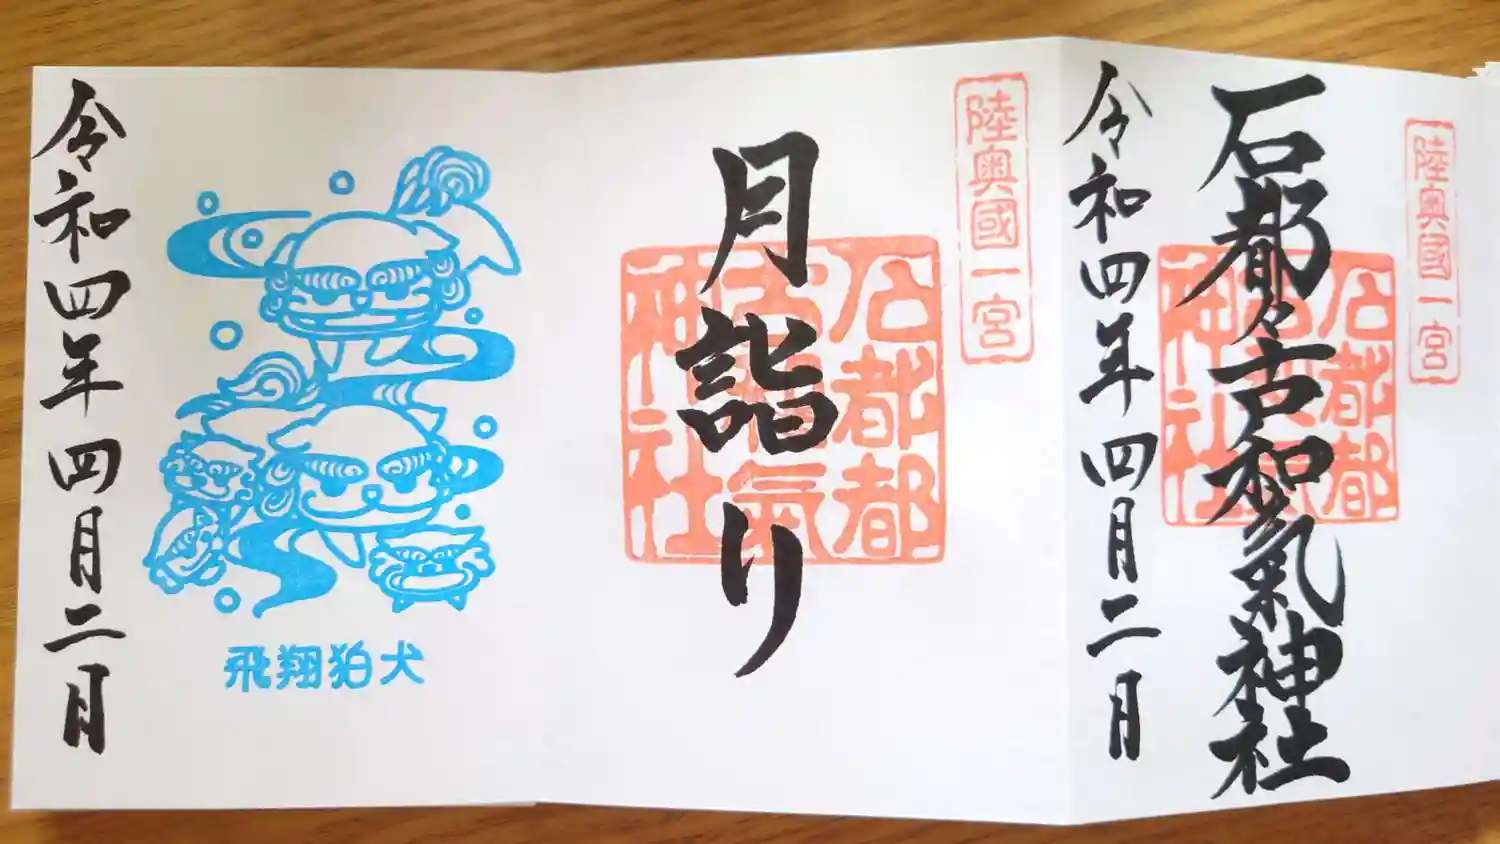 陸奥國一宮
石都々古和氣神社
石都都
古和氣
神社
令和四年四月二日
陸奥國一宮
月詣り
石都都
古和氣
神社
飛翔狛犬
令和四年四月二日